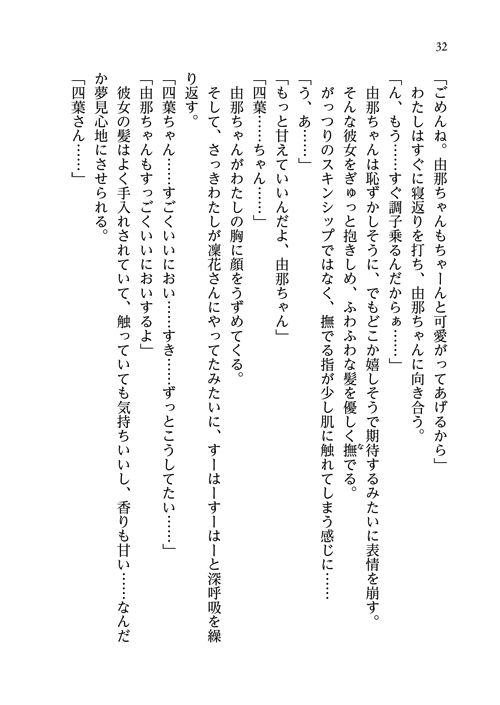 32
「ごめんね。由那ちゃんもちゃーんと可愛がってあげるから」
わたしはすぐに寝返りを打ち、由那ちゃんに向き合う。
「ん、もう……すぐ調子乗るんだからぁ……」
由那ちゃんは恥ずかしそうに、でもどこか嬉しそうで期待するみたいに表情を崩す。
そんな彼女をぎゅっと抱きしめ、ふわふわな髪を優しく撫でる。
な
がっつりのスキンシップではなく、撫でる指が少し肌に触れてしまう感じに……
「う、あ……」
「もっと甘えていいんだよ、由那ちゃん」
「四葉……ちゃん……」
由那ちゃんがわたしの胸に顔をうずめてくる。
そして、さっきわたしが凜花さんにやってたみたいに、すーはーすーはーと深呼吸を繰
り返す。
「四葉ちゃん……すごくいいにおい……すき……ずっとこうしてたい……」
「由那ちゃんもすっごくいいにおいするよ」
彼女の髪はよく手入れされていて、触っていても気持ちいいし、香りも甘い……なんだ
か夢見心地にさせられる。
「四葉さん……」